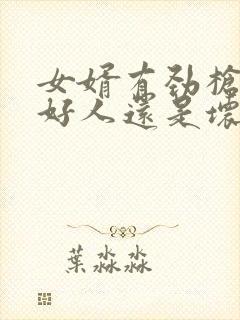 女婿有劲槍
好人還是壞
葉淼淼